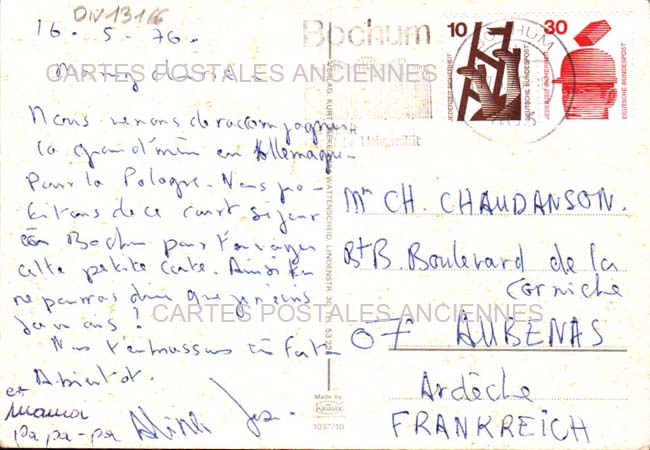 DIV13166
16 - 5 - 76.
Mon
CARTES POSTALES ANCIENNES
Nous venons de raccompagner
la grand'mère en Allemagne
pour la Pologne. Nous pro-
fitons de ce court séjour
à Bochum pour t'envoyer
cette petite carte. Ainsi tu
ne pourras dire que je n'écris
jamais !
CARTES POSTALES ANCIENNES
Nous t'embrassons
A bientôt.
et
mama
papa
Bochum
Universität
10
JEDERZEIT SICHERHEIT
DEUTSCHE BUNDESPOST
30
JEDERZEIT SICHERHEIT
DEUTSCHE BUNDESPOST
BOCHUM
Mr CH. CHAUDANSON.
Bt B. Boulevard de la
Corniche
07 AUBENAS
Ardèche
FRANKREICH
Made by
KRÜGER
1037/10